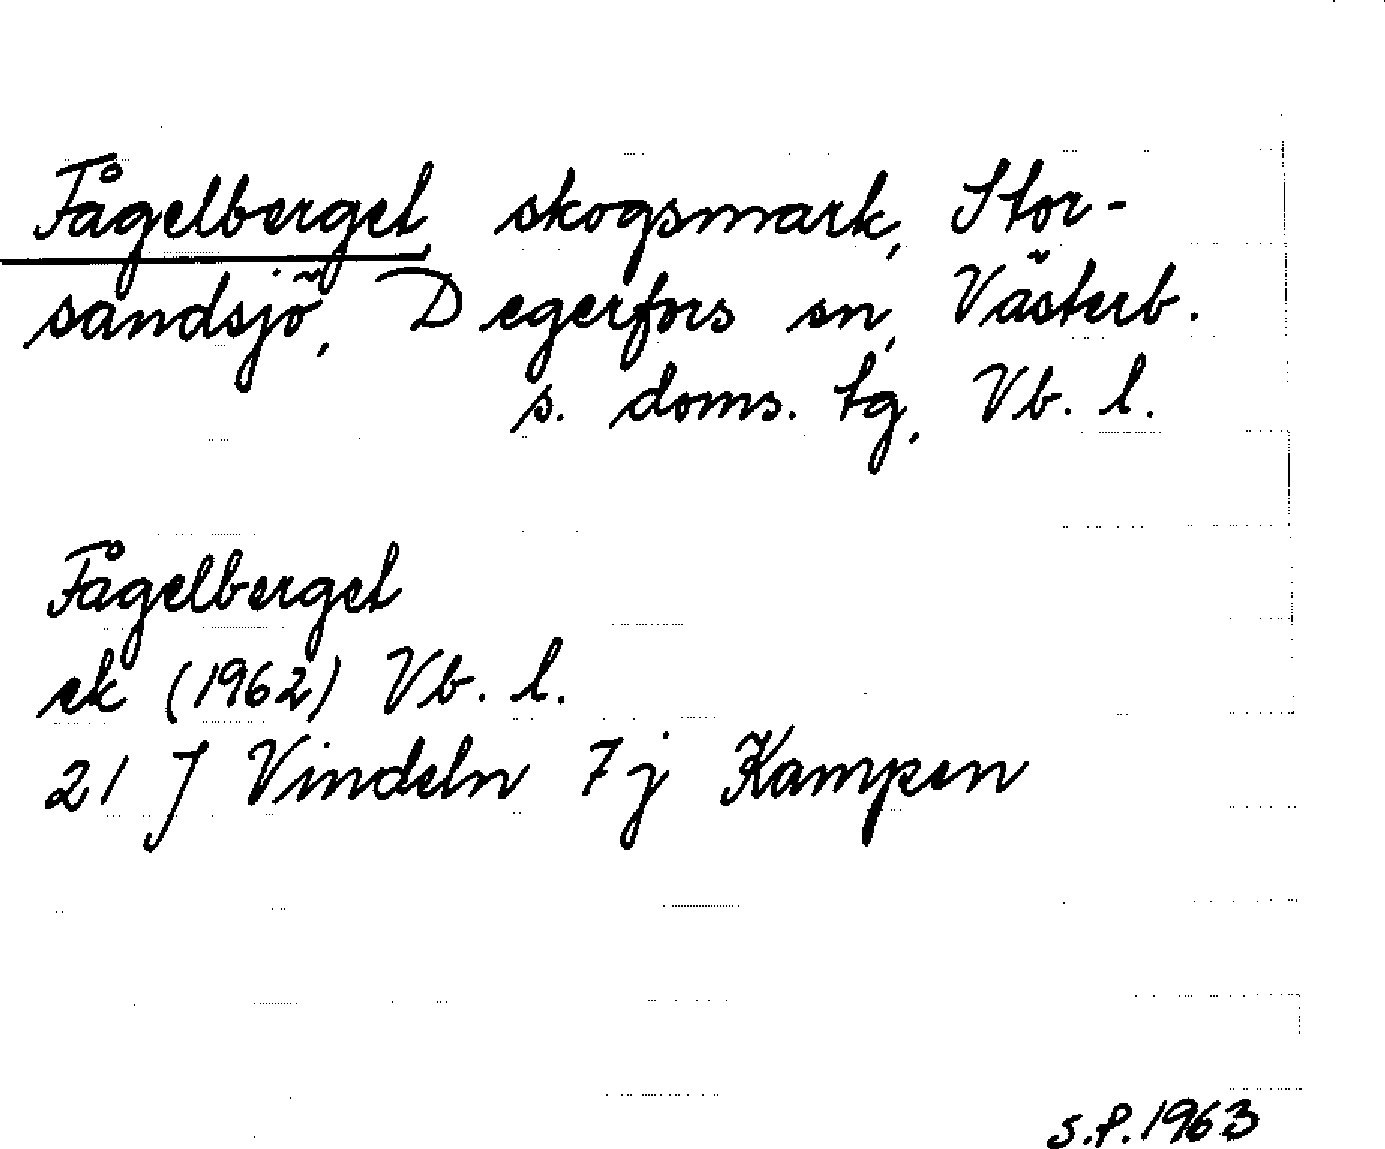 Fågelberget, skogsmark, Stor-
sandsjö, Degerfors sn, Västerb.
s. doms. tg, Vb. l.
Fågelberget
ek (1962) Vb. l.
21 J Vindeln 7j Kampen
S.P. 1963